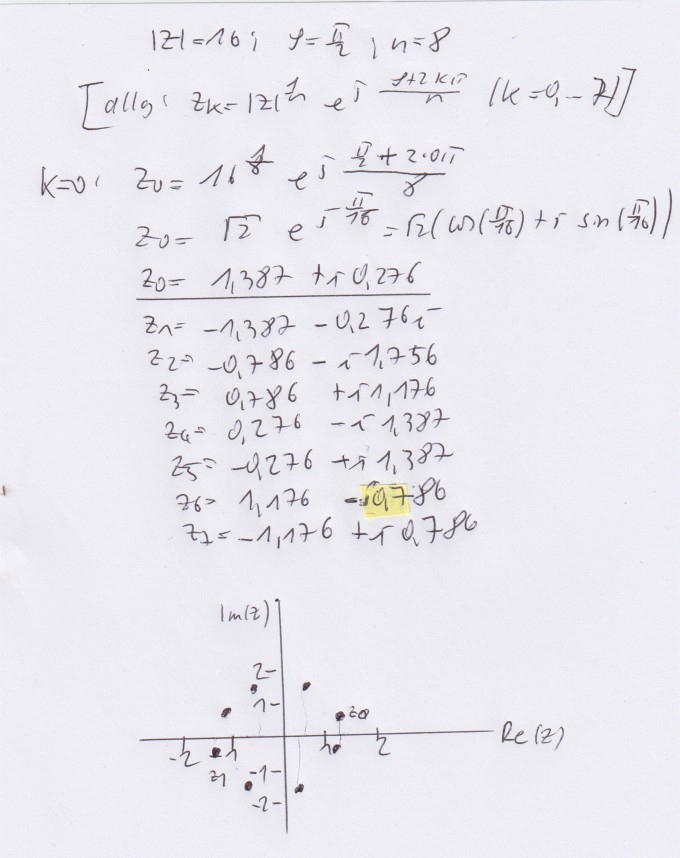 |z|=16; φ=π/2; n=8
[allg: z_k=|z|^(1/n) e^(i (φ+2kπ)/n) (k=0,-7)]
k=0: z_0 = 16^(1/8) e^(i (π/2+2·0π)/8)
z_0= √2 e^(i π/16) = √2(cos(π/16)+i sin(π/16))
z_0= 1,387 +i 0,276
z_1= -1,387 -0,276i
z_2= -0,786 - i 1,756
z_3= 0,786 +i 1,176
z_4= 0,276 -i 1,387
z_5= -0,276 +i 1,387
z_6= 1,176 -i 0,786
z_7= -1,176 +i 0,786
Im(z)
2
1
z_0
-2 1 1 2 Re(z)
z_1 -1
-2